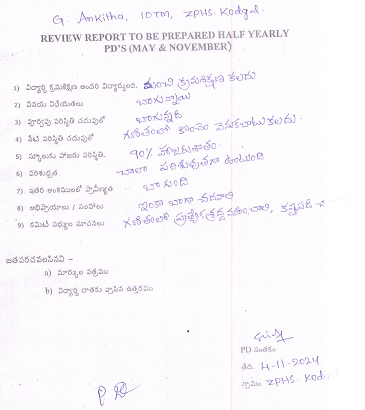 G. Ankitha, IOTM, ZPHS. Kodgal.
REVIEW REPORT TO BE PREPARED HALF YEARLY
PD'S (MAY & NOVEMBER)
1) విద్యార్థి క్రమశిక్షణ అందరి విద్యార్థులంది. మంచి క్రమశిక్షణ కలదు
2) వినయ విధేయతలు బాగున్నాయి
3) పూర్వపు పరిస్థితి చదువులో బాగున్నది
4) నేటి పరిస్థితి చదువులో గణితంలో కొంచెం వెనుకబాటు కలదు.
5) స్కూలుకు హాజరు పరిస్థితి. 90% హాజరుశాతం.
6) పరిశుభ్రత చాలా పరిశుభ్రతగా ఉంటుంది
7) ఇతర అంశములలో ప్రావీణ్యత బాగుంది
8) అభిప్రాయాలు / సలహాలు ఇంకా బాగా చదవాలి
9) కమిటీ సభ్యుల సూచనలు గణితంలో ప్రత్యేక శ్రద్ధ వహించాలి, కష్టపడి చ
జతపరచవలసినవి –
a) మార్కుల పత్రము
b) విద్యార్థి దాతకు వ్రాసిన ఉత్తరము
PD సంతకం
తేది. 4-11-2024
గ్రామం ZPHS. Kod